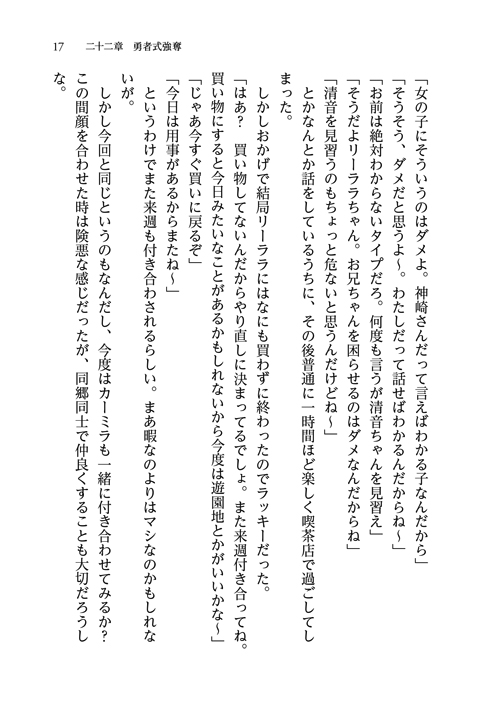 17　二十二章　勇者式強奪
「女の子にそういうのはダメよ。神崎さんだって言えばわかる子なんだから」
「そうそう、ダメだと思うよ〜。わたしだって話せばわかるんだからね〜」
「お前は絶対わからないタイプだろ。何度も言うが清音ちゃんを見習え」
「そうだよリーララちゃん。お兄ちゃんを困らせるのはダメなんだからね」
「清音を見習うのもちょっと危ないと思うんだけどね〜」
　とかなんとか話をしているうちに、その後普通に一時間ほど楽しく喫茶店で過ごしてし
まった。
　しかしおかげで結局リーララにはなにも買わずに終わったのでラッキーだった。
「はあ？　買い物してないんだからやり直しに決まってるでしょ。また来週付き合ってね。
買い物にすると今日みたいなことがあるかもしれないから今度は遊園地とかがいいかな〜」
「じゃあ今すぐ買いに戻るぞ」
「今日は用事があるからまたね〜」
　というわけでまた来週も付き合わされるらしい。まあ暇なのよりはマシなのかもしれな
いが。
　しかし今回と同じというのもなんだし、今度はカーミラも一緒に付き合わせてみるか？
この間顔を合わせた時は険悪な感じだったが、同郷同士で仲良くすることも大切だろうし
な。